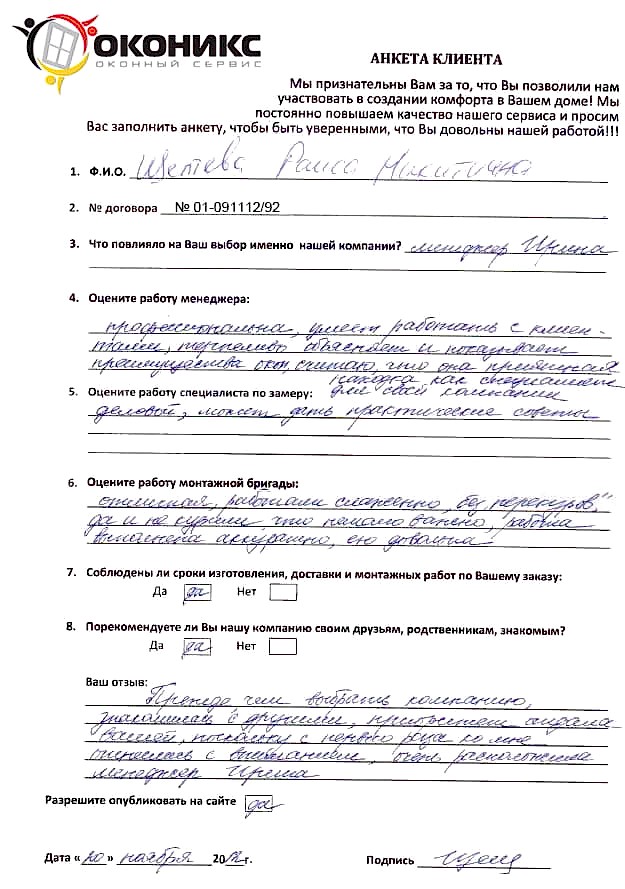 ОКОНИКС
ОКОННЫЙ СЕРВИС
АНКЕТА КЛИЕНТА
Мы признательны Вам за то, что Вы позволили нам
участвовать в создании комфорта в Вашем доме! Мы
постоянно повышаем качество нашего сервиса и просим
Вас заполнить анкету, чтобы быть уверенными, что Вы довольны нашей работой!!!
1. Ф.И.О. Раиса Никитична
2. № договора № 01-091112/92
3. Что повлияло на Ваш выбор именно нашей компании? менеджер Ирина
4. Оцените работу менеджера:
профессиональна, умеет работать с клиен-
тами, терпеливо объясняет и показывает
преимущества окон, считаю, что она
находка как специалист
5. Оцените работу специалиста по замеру: для своей компании
деловой, может дать практические советы
6. Оцените работу монтажной бригады:
отличная, работали слаженно, без "перекуров",
да и не курили, что немало важно, работа
выполнена аккуратно, ею довольна
7. Соблюдены ли сроки изготовления, доставки и монтажных работ по Вашему заказу:
Да да Нет
8. Порекомендуете ли Вы нашу компанию своим друзьям, родственникам, знакомым?
Да да Нет
Ваш отзыв:
Прежде чем выбрать компанию,
знакомилась с другими, предпочтение отдала
вашей, поскольку с первого раза ко мне
отнеслась с вниманием, очень расположена
менеджер Ирина
Разрешите опубликовать на сайте да
Дата «20» ноября 2012г. Подпись